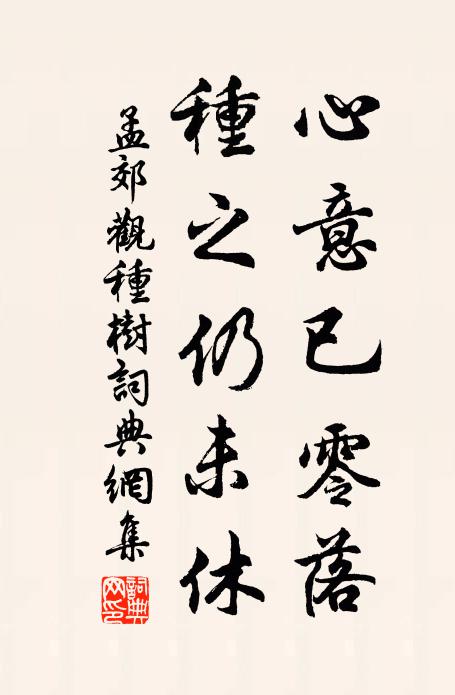 心意已零落
種之仍未休
孟郊觀種樹詞典網集
詞典网印